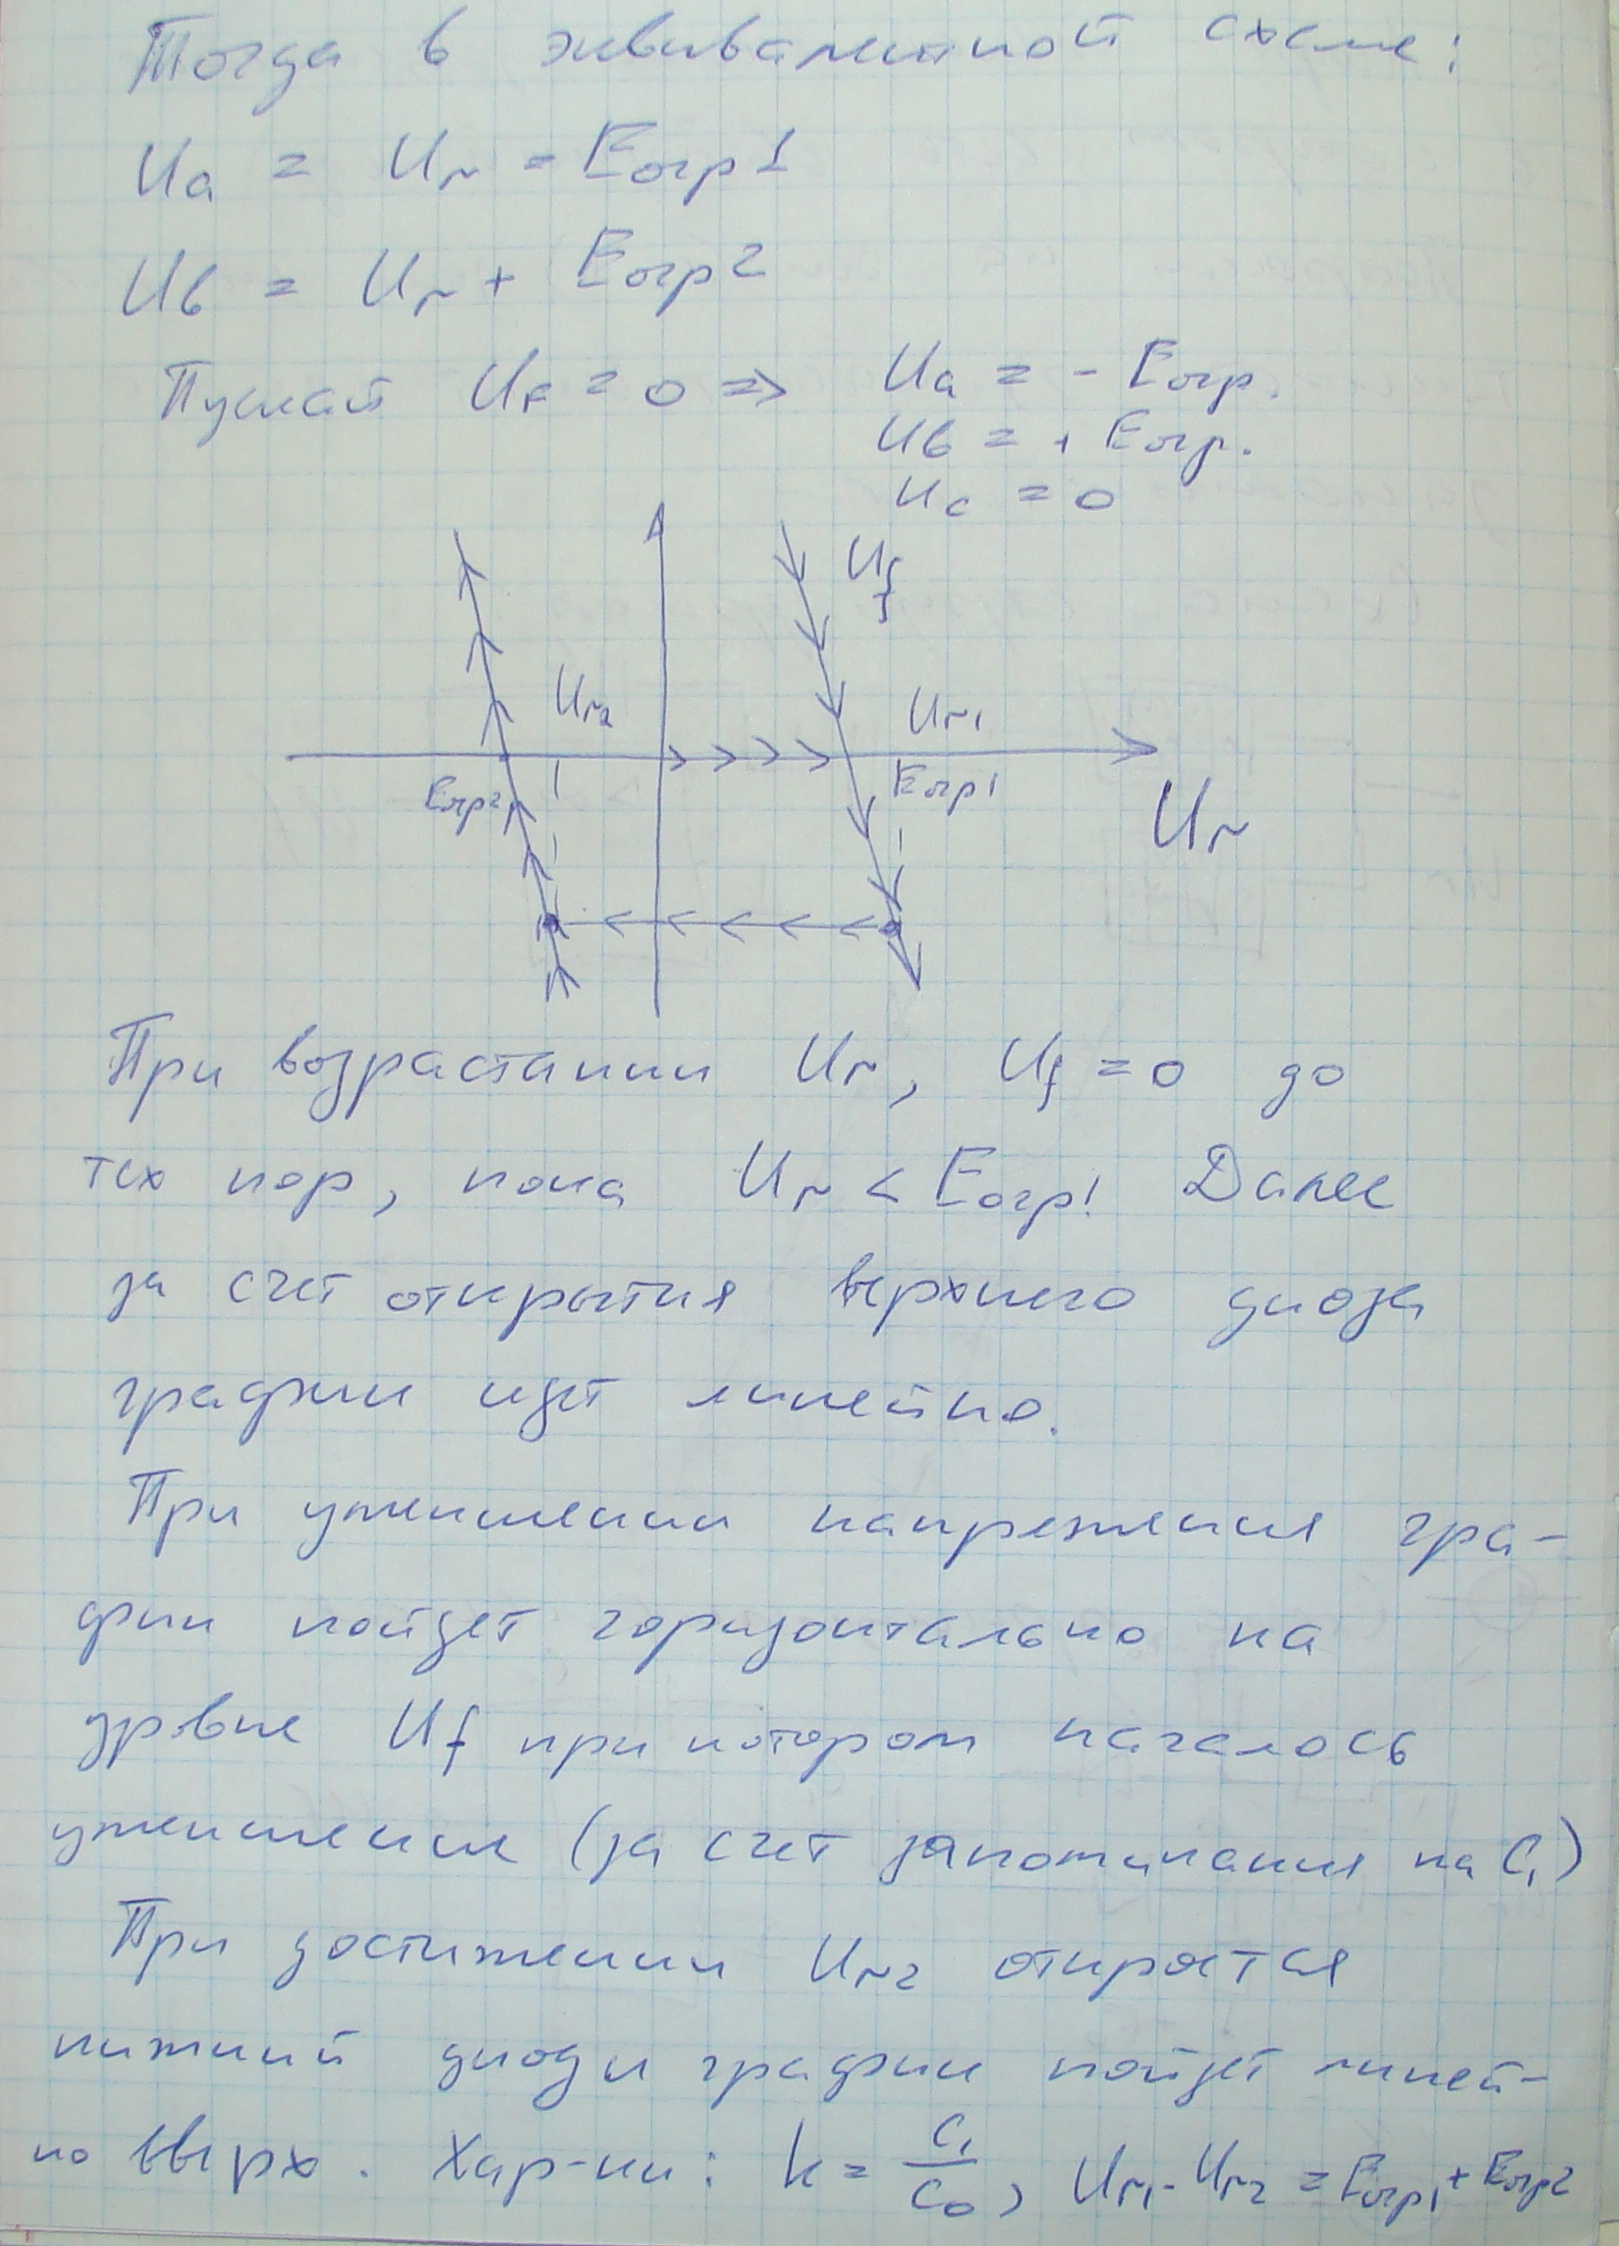 Тогда в эквивалентной схеме:
Ua = U~ - Eогр1
Uв = U~ + Eогр2
Пускай Uf = 0 => Ua = - Eогр.
Uв = + Eогр.
Uc = 0
Uf
U~2
U~1
Eогр2
Eогр1
U~
При возрастании U~, Uf = 0 до
тех пор, пока U~ < Eогр1 Далее
за счет открытия верхнего диода
график идет линейно.
При уменьшении напряжения гра-
фик пойдет горизонтально на
уровне Uf при котором началось
уменьшение (за счет запоминания на C1)
При достижении U~2 откроется
нижний диод и график пойдет линей-
но вверх. Хар-ки: k = C1/C0, U~1 - U~2 = Eогр1 + Eогр2